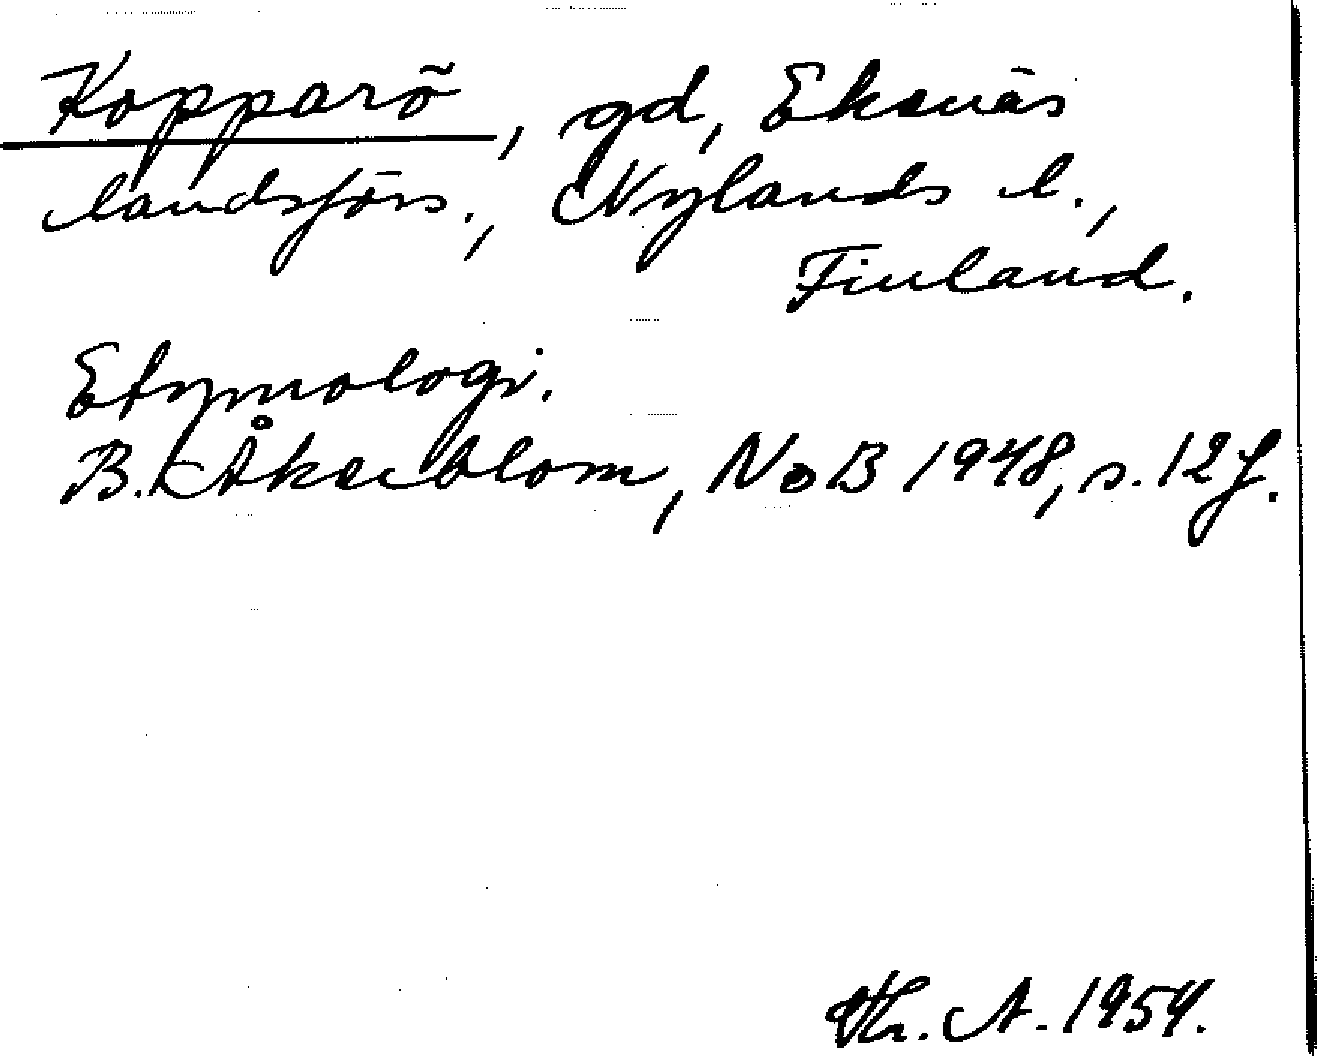 Kopparö, gd, Ekenäs
landsförs., Nylands l.,
Finland.
Etymologi.
B. Åkerblom, NoB 1948, s. 12 f.
Th. A. 1954.